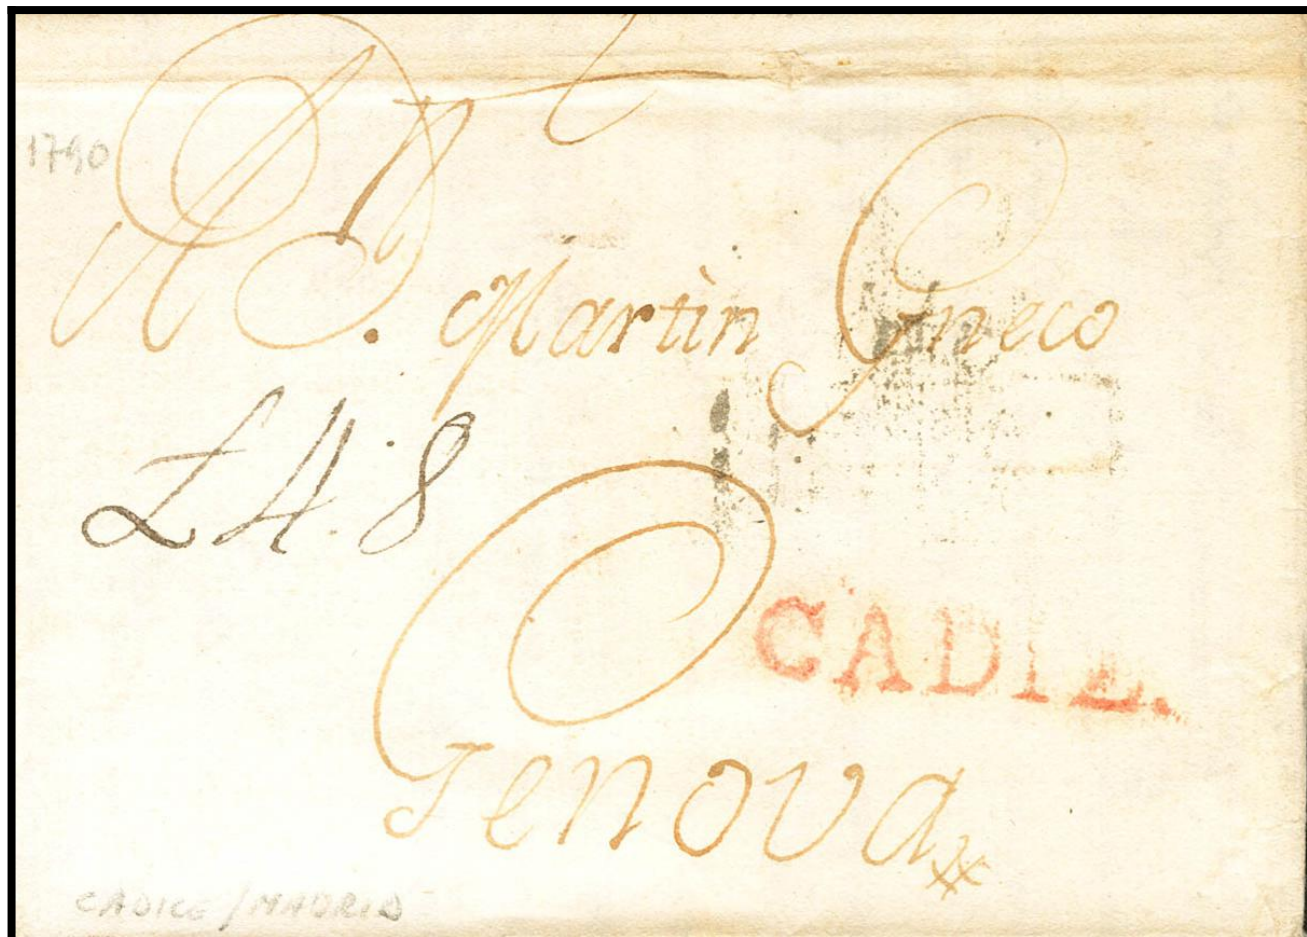 1790
A D.ⁿ Martin Gneco
£4:8
CADIZ.
Genova
CADICE/MADRID